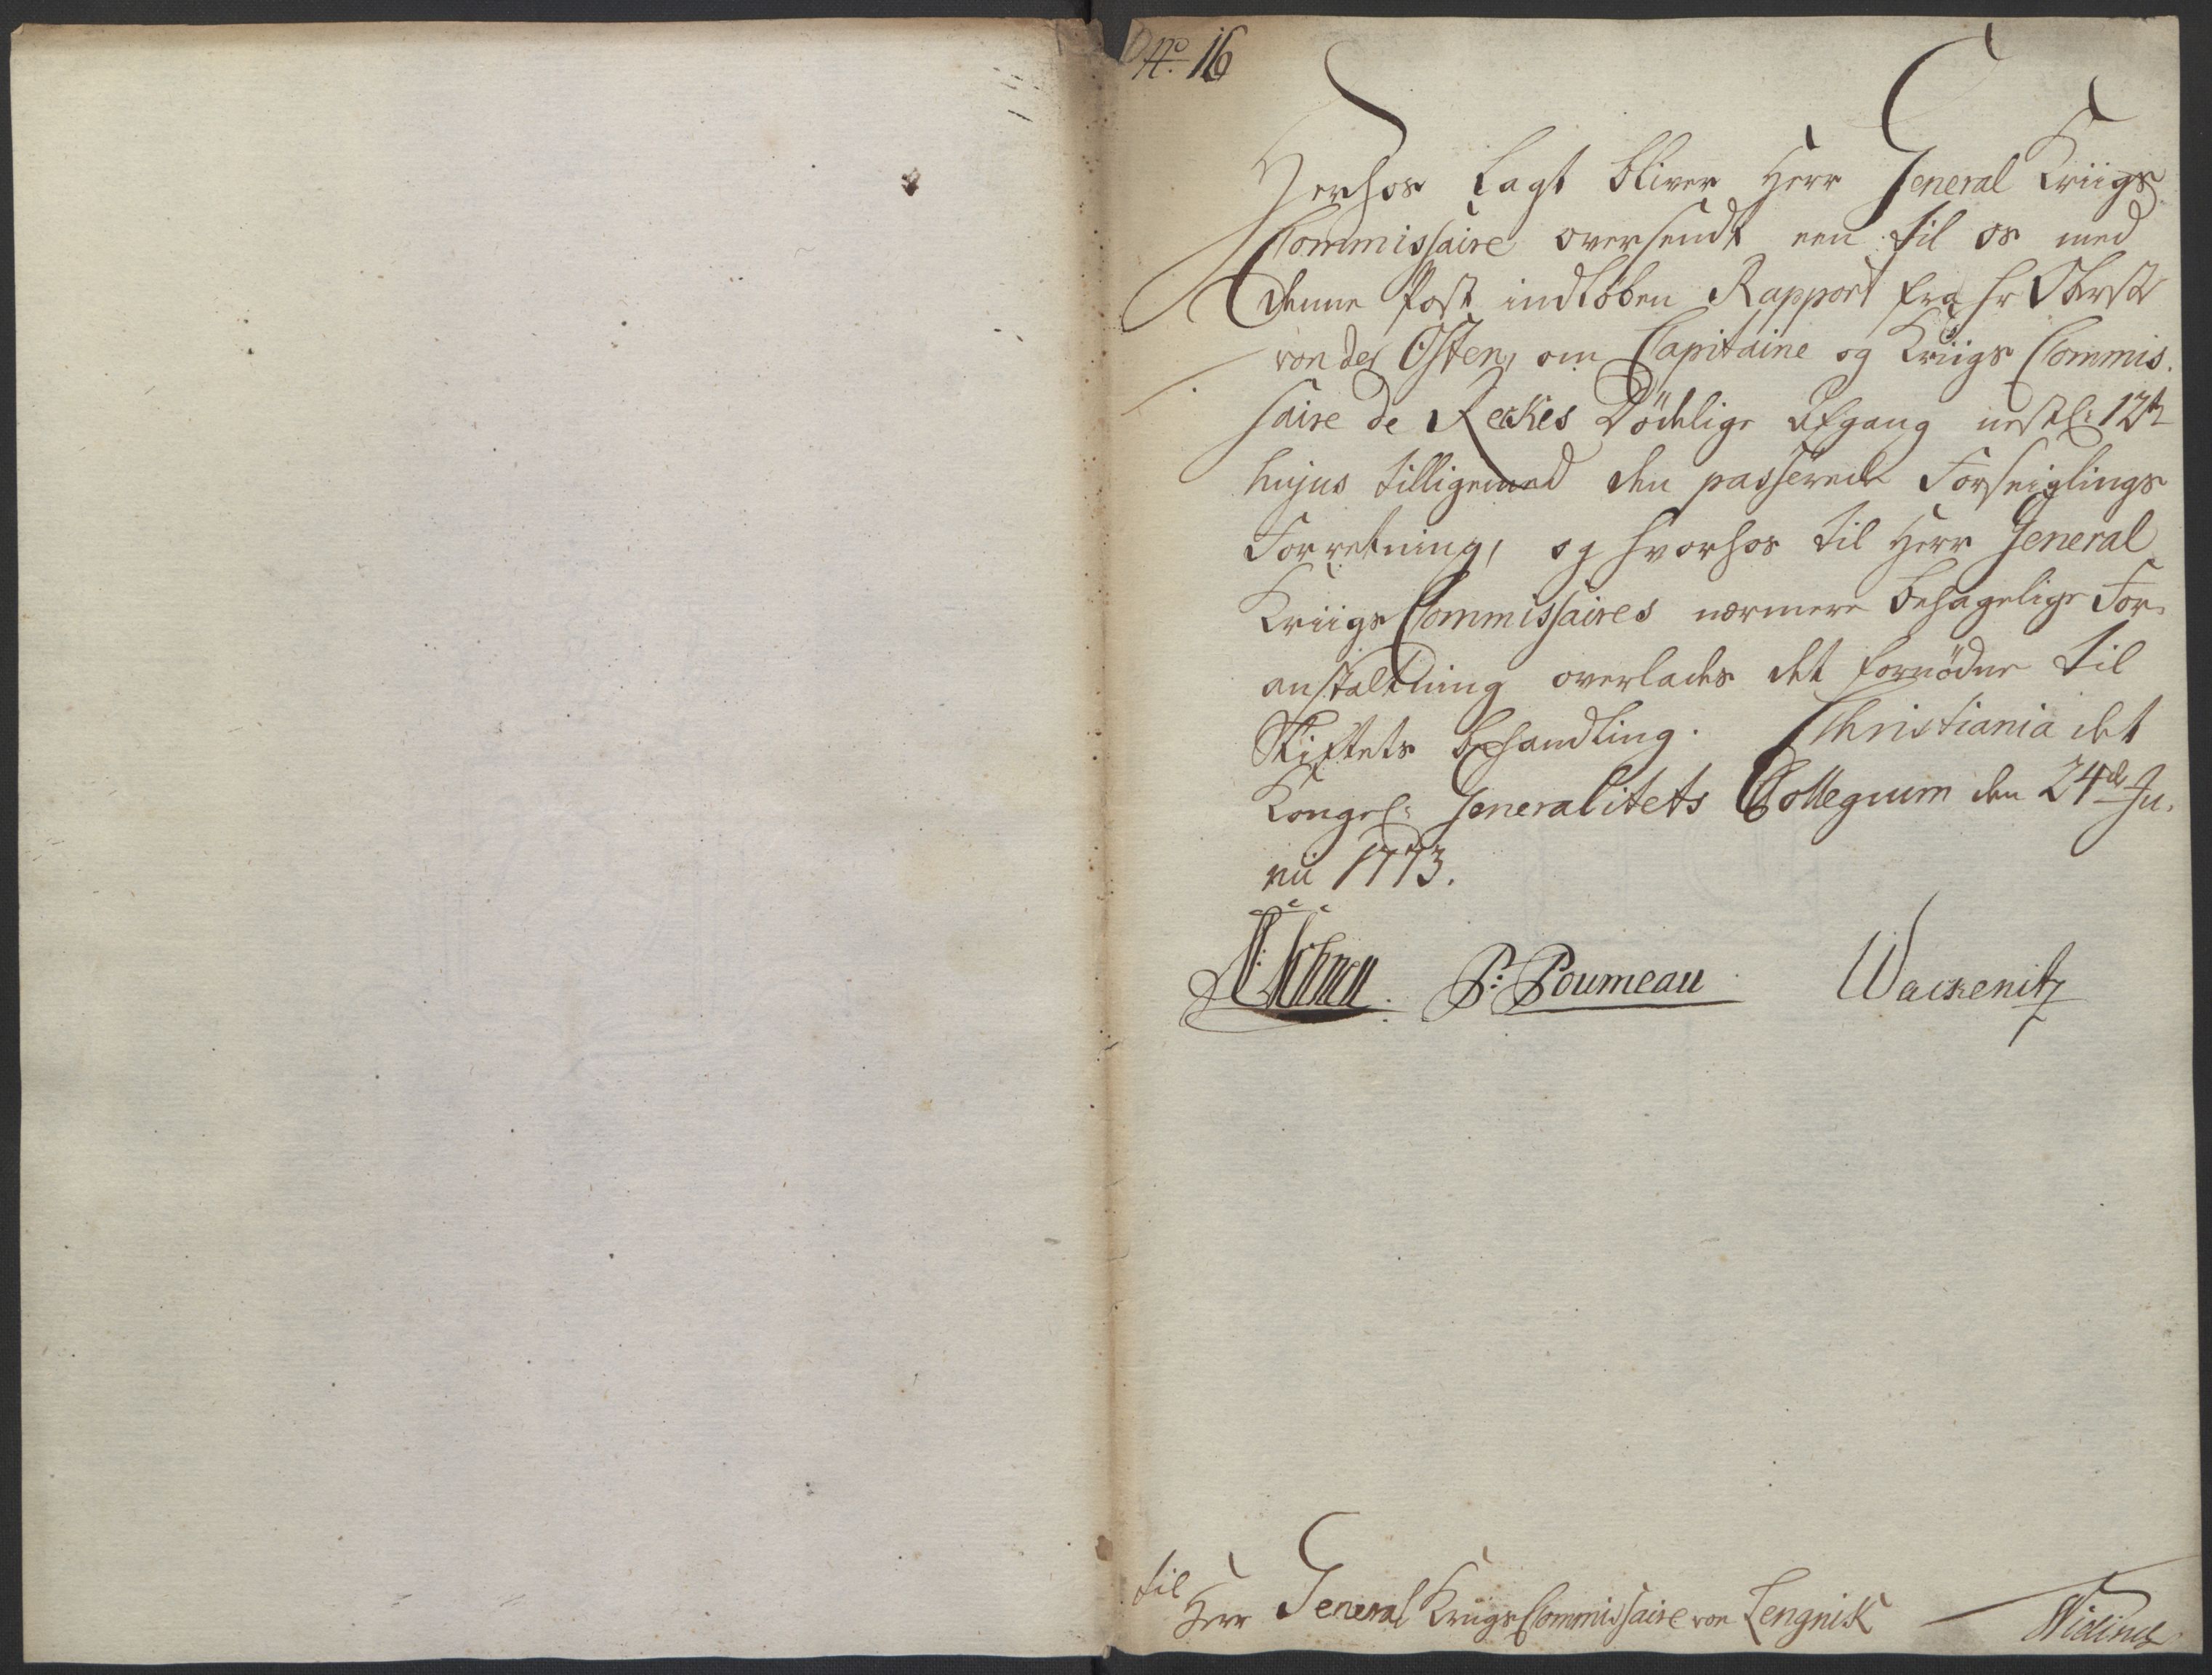 No. 16
Herhos Lagt bliver Herr General Kriigs
Commissaire oversendt een til os med
denne Post indløben Rapport fra hr Obrst
von der Osten, om Capitaine og Kriigs Commis-
saire de Reckes Dödelige Afgang nestl: 12te
hujus tilligemed den passerede Forseiglings
Forretning, og hvorhos til Herr General
Kriigs Commissaires nærmere behagelige For-
anstaltning overlades det fornødne til
Skiftets behandling. Christiania det
Kongel: Generalitets Collegium den 24de Ju-
nii 1773.
P: Poumeau Wackenitz
til
Herr General Kriigs Commissaire von Lengnick